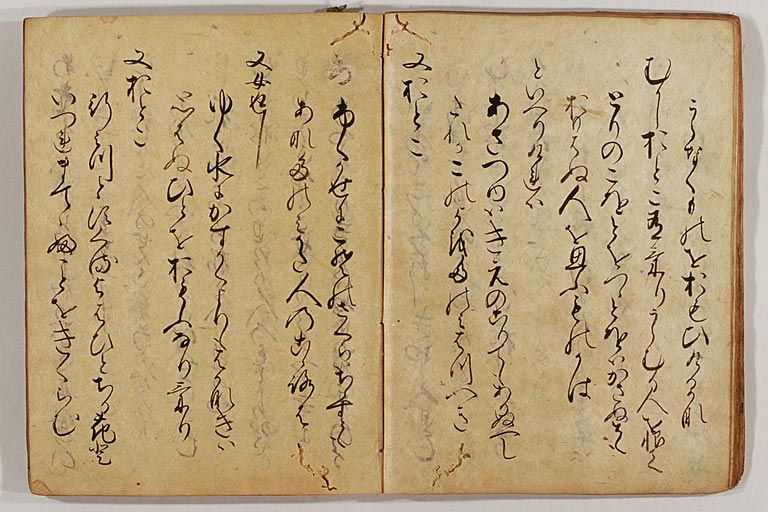 うらなくものをおもひけるかな
むかしおとこ有けりうらむる人を恨て
とりのこをとをつゝとをはかさぬとも
おもはぬ人を思ふものかは
といへりけれは
あさつゆはきえのこりてもありぬへし
たれかこの世をたのみはつへき
又おとこ
ふくかせにこその桜はちらすとも
あなたのみかた人の心は
又女返し
ゆく水にかすかくよりもはかなきは
思はぬひとをおもふなりけり
又おとこ
行みつとすくるよはひとちる花と
いつれまててふことをきくらむ